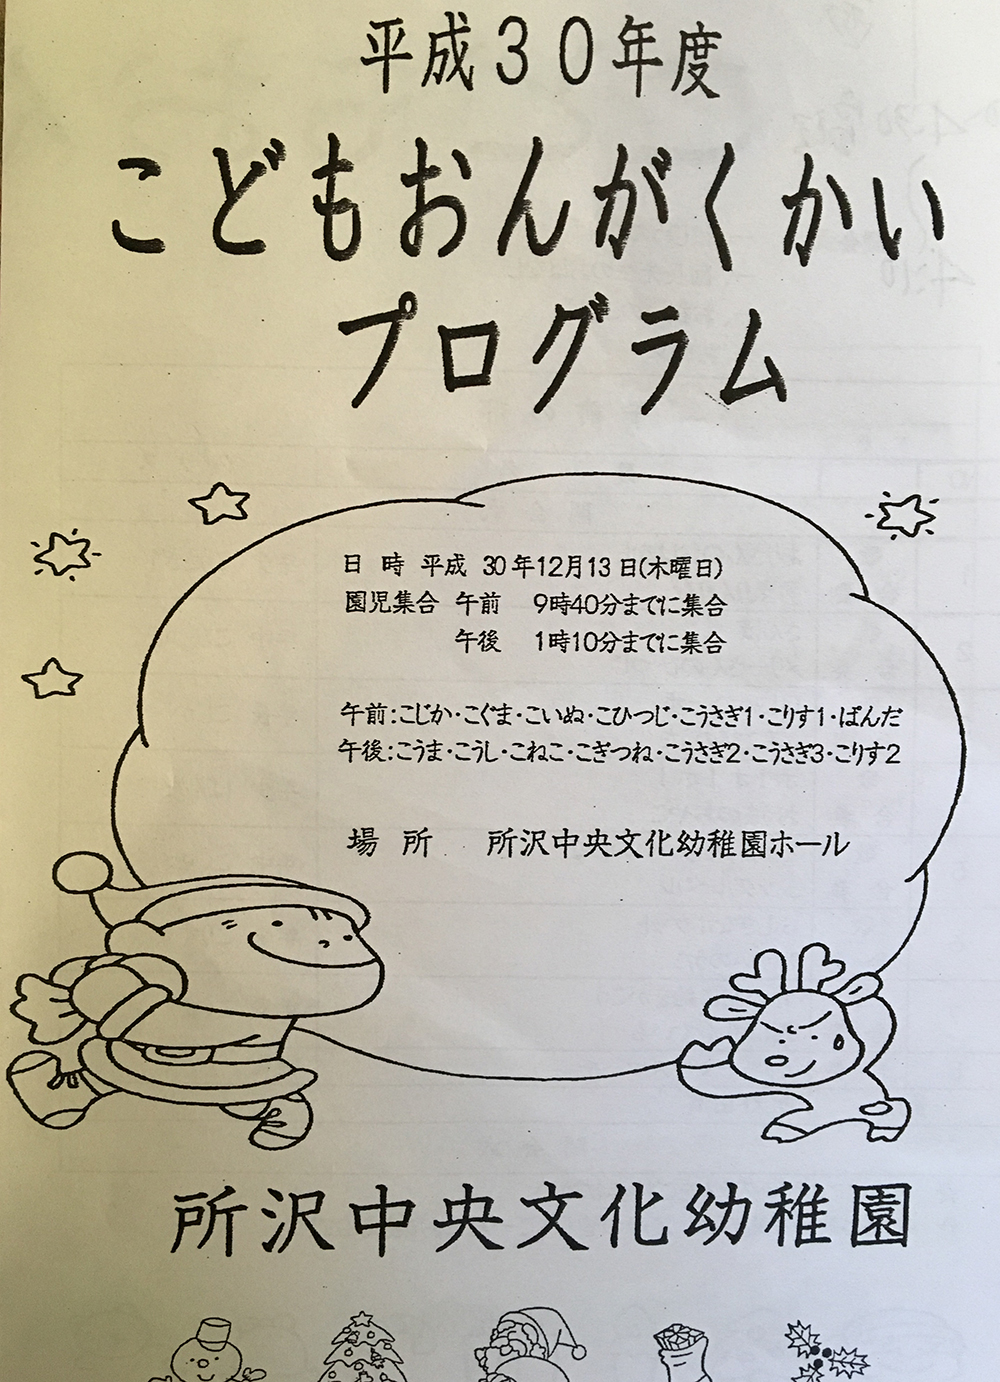 平成30年度
こどもおんがくかい
プログラム
日 時 平成 30年12月13日(木曜日)
園児集合 午前 9時40分までに集合
午後 1時10分までに集合
午前:こじか・こぐま・こいぬ・こひつじ・こうさぎ1・こりす1・ぱんだ
午後:こうま・こうし・こねこ・こぎつね・こうさぎ2・こうさぎ3・こりす2
場 所 所沢中央文化幼稚園ホール
所沢中央文化幼稚園